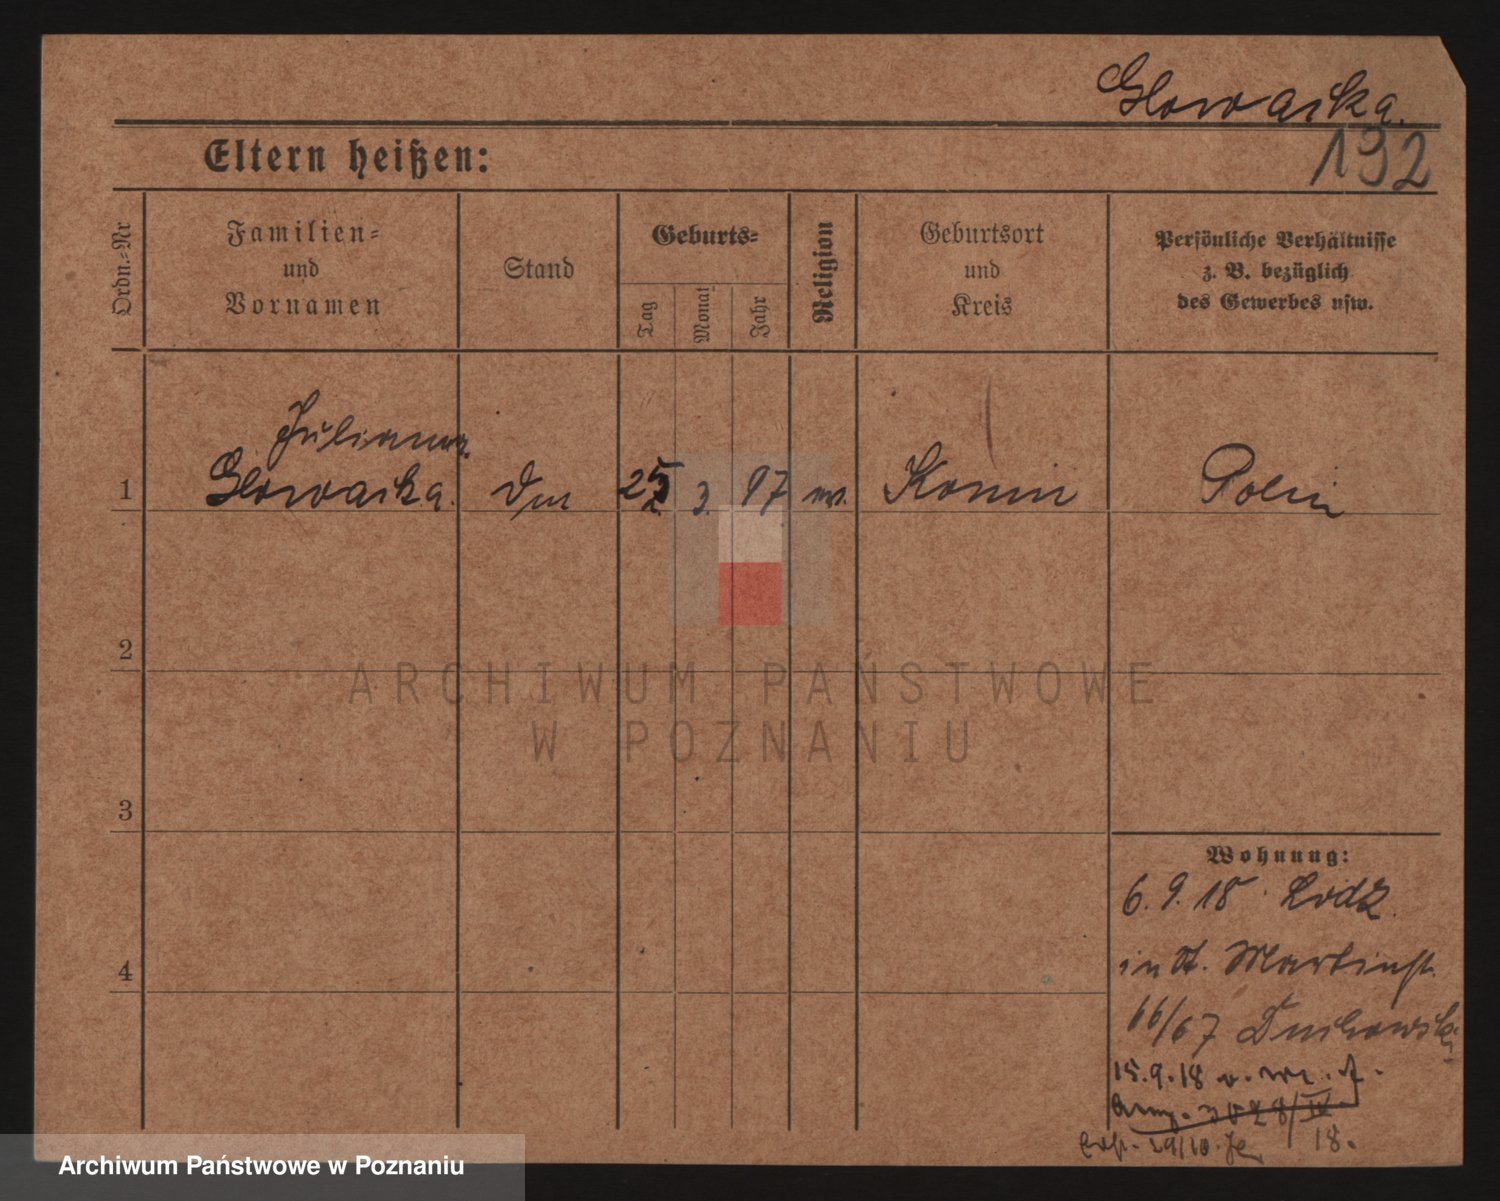 Glowacka.
Eltern heißen:
192
Ordn.-Nr
Familien-
und
Vornamen
Stand
Geburts-
Tag
Monat
Jahr
Religion
Geburtsort
und
Kreis
Persönliche Verhältnisse
z. B. bezüglich
des Gewerbes usw.
Julianna
1 Glowacka. 25. 3. 97 Konin Polin
2
3
4
ARCHIWUM PAŃSTWOWE
W POZNANIU
Wohnung:
6. 9. 18 Lodz
in St. Martinst.
66/67
15.9.18
29/10. 18.
Archiwum Państwowe w Poznaniu